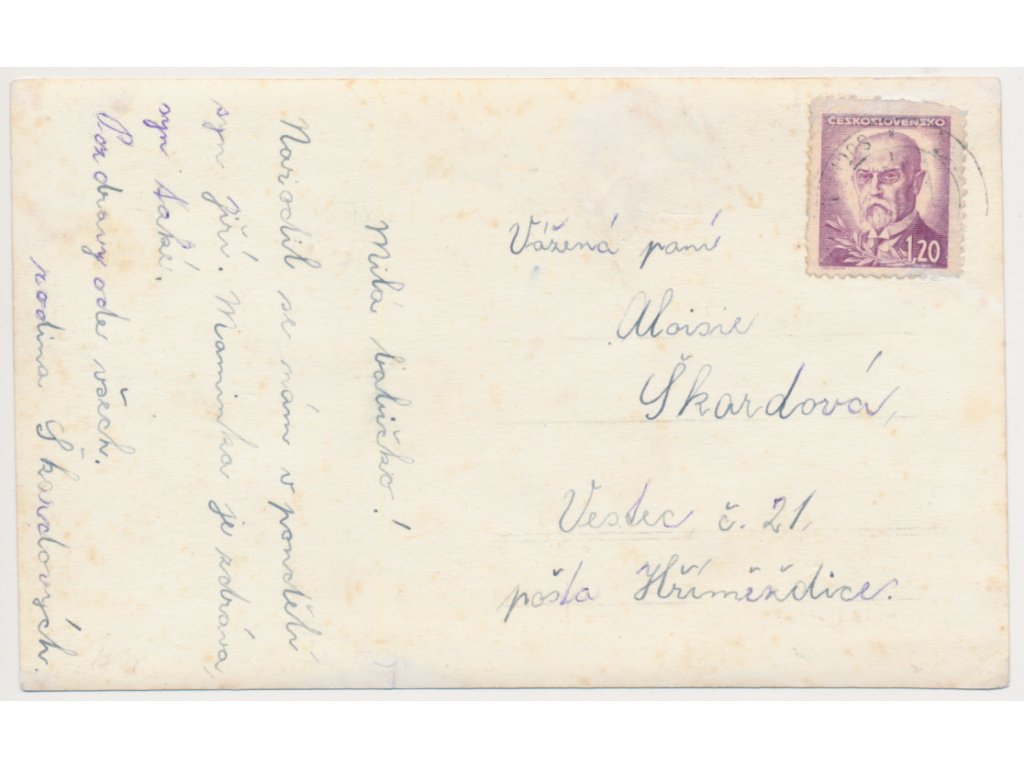 Milá babičko!
Narodil se nám v pondělí
syn Jiří. Maminka je zdráva
syn také.
Pozdravy ode všech.
rodina Škardových.
ČESKOSLOVENSKO
1,20
Vážená paní
Aloisie
Škardová,
Vestec č. 21,
pošta Hříměždice.